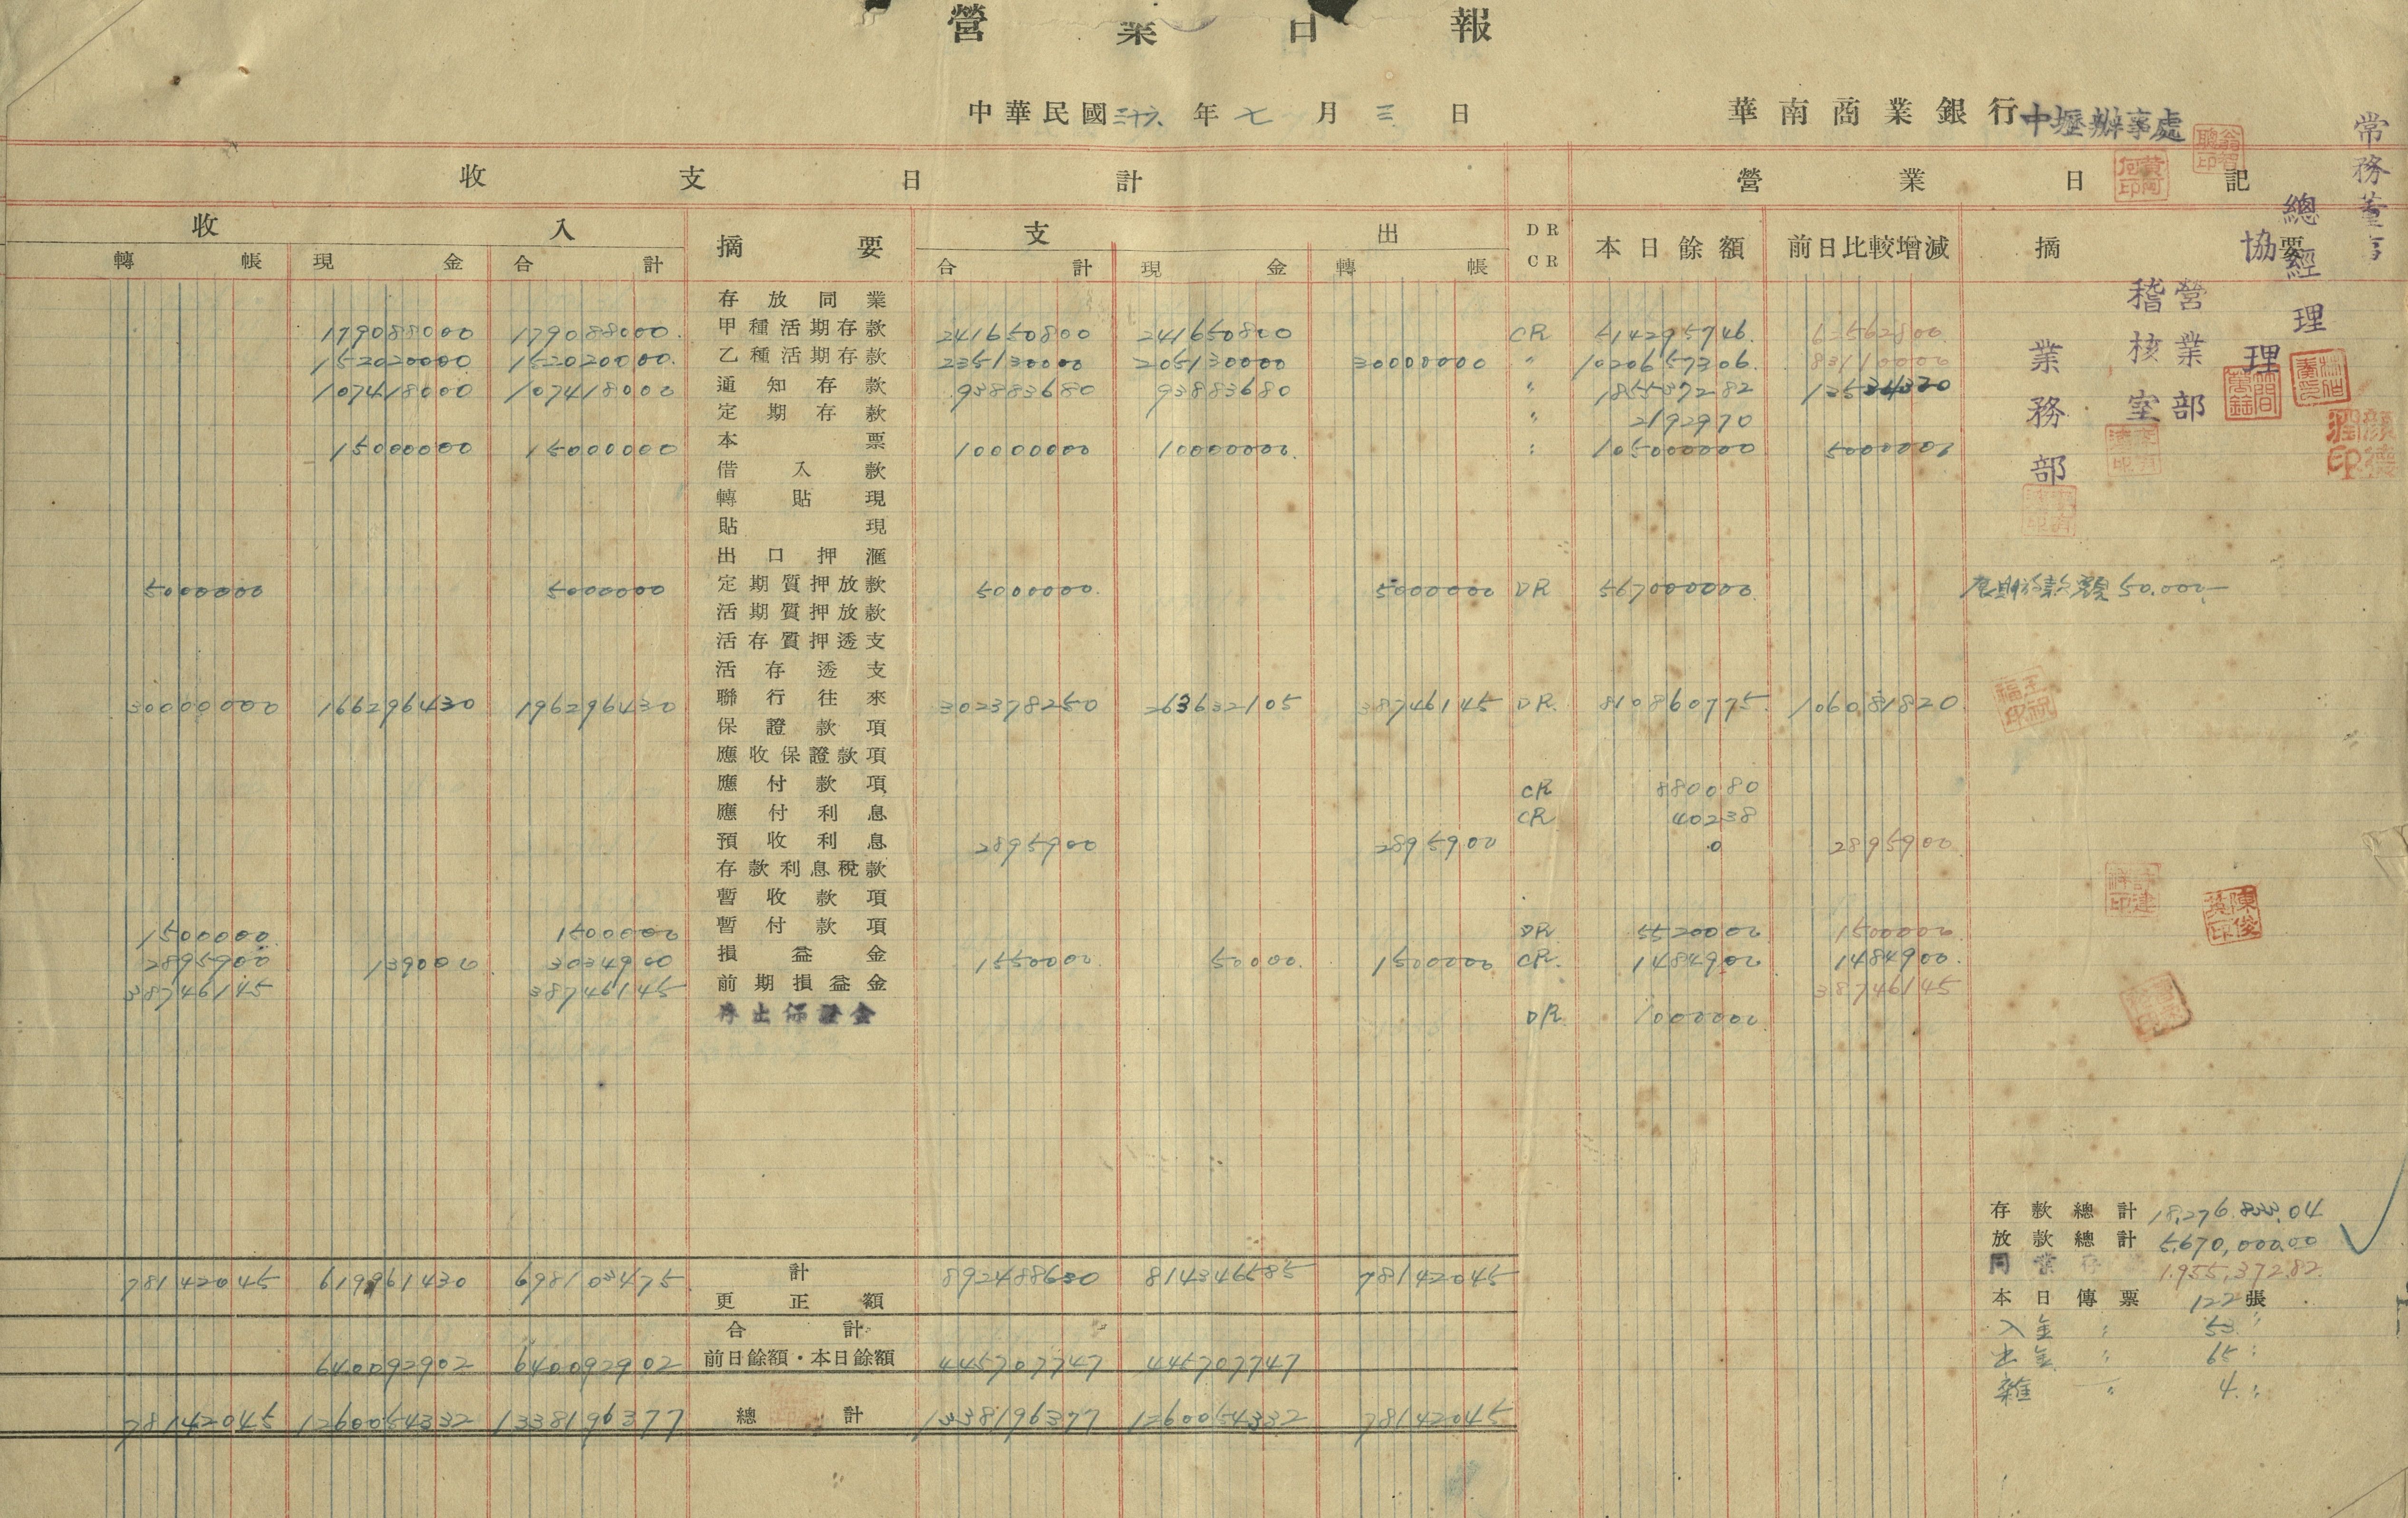 營業日報
中華民國三十六年七月三日 華南商業銀行中壢辦事處
常務董事
總經理
協理
營業部
稽核室
業務部
收支日計 營業日記
收入 摘要 支出 DR CR 本日餘額 前日比較增減 摘要
轉帳 現金 合計 合計 現金 轉帳
存放同業
179088000 179088000 甲種活期存款 241650800 241650800 CR 514295746 62562800
152020000 152020000 乙種活期存款 235130000 205130000 30000000 〃 1020657306 83110000
107418000 107418000 通知存款 93883680 93883680 〃 185537282 13534320
定期存款 〃 2192970
15000000 15000000 本票 10000000 10000000 〃 105000000 5000000
借入款
轉貼現
貼現
出口押滙
5000000 5000000 定期質押放款 5000000 5000000 DR 567000000 展期放款 50.000-
活期質押放款
活存質押透支
活存透支
30000000 166296430 196296430 聯行往來 302378250 263632105 38746145 DR 810860775 106081820
保證款項
應收保證款項
應付款項 CR 880080
應付利息 CR 40238
預收利息 2895900 2895900 0 2895900
存款利息稅款
暫收款項
1500000 1500000 暫付款項 DR 5520000 1500000
2895900 139000 3034900 損益金 1550000 50000 1500000 CR 1484900 1484900
38746145 38746145 前期損益金 38746145
存出保證金 DR 1000000
存款總計 18,276.833.04
放款總計 5,670,000.00
同業存 1.955,372.82
本日傳票 122張
入金 〃 53 〃
出金 〃 65 〃
雜 〃 4 〃
78142045 619961430 698103475 計 892488630 814346585 78142045
更正額
合計
640092902 640092902 前日餘額・本日餘額 445707747 445707747
78142045 1260054332 1338196377 總計 1338196377 1260054332 78142045